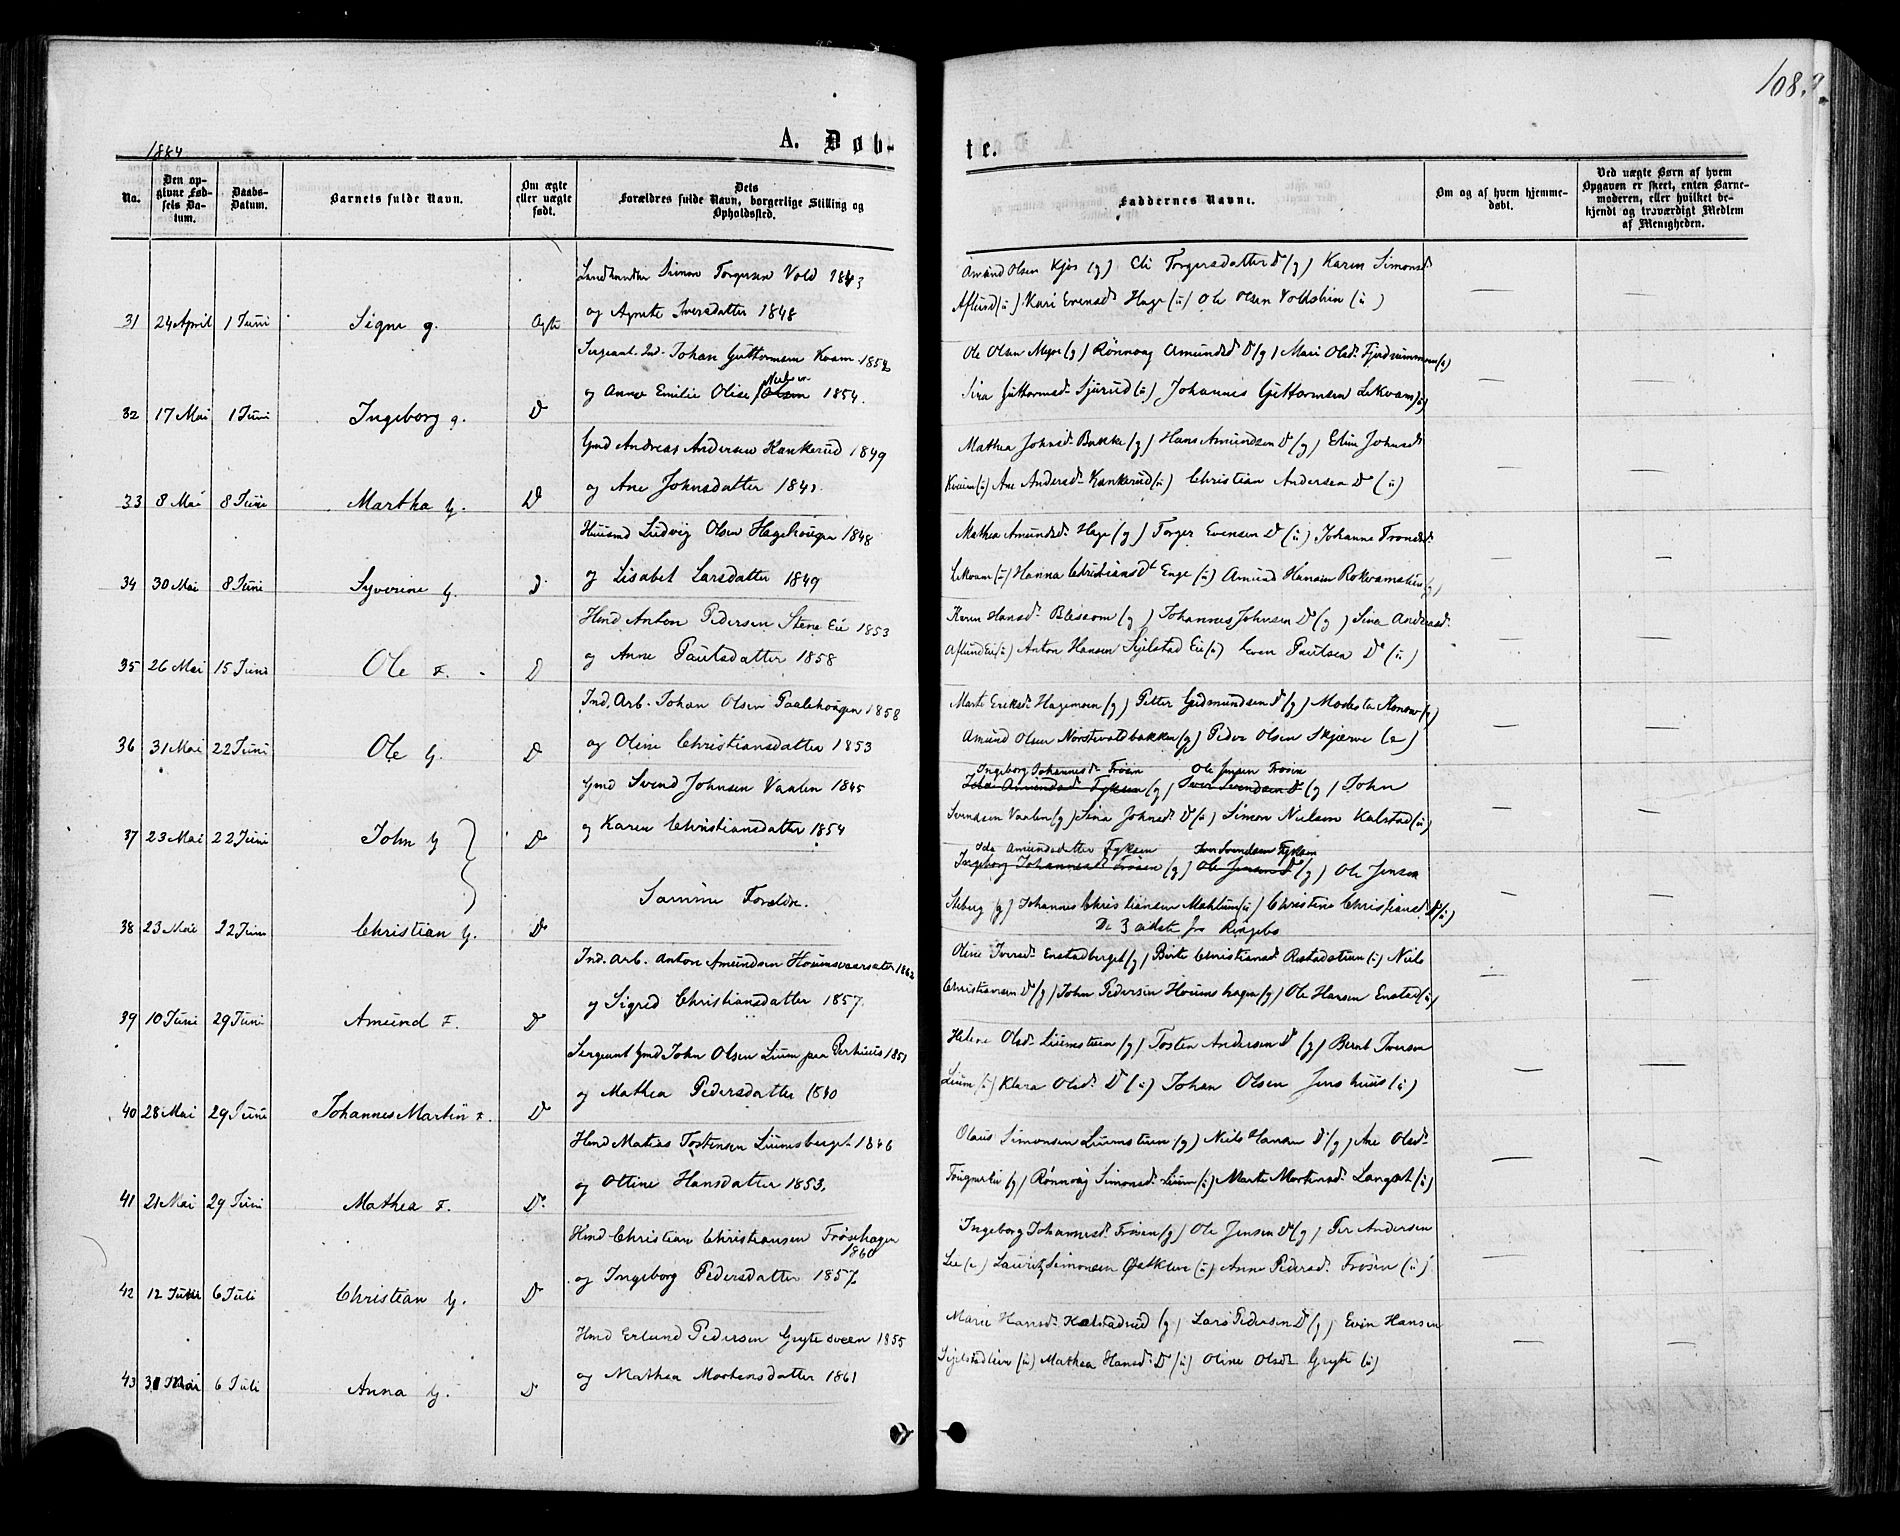 108.
1884
A. Døb-
te.
No.
Den opgivne Fødsels Datum.
Daabs-Datum.
Barnets fulde Navn.
Om ægte eller uægte født.
Dets Forældres fulde Navn, borgerlige Stilling og Opholdssted.
Faddernes Navne.
Om og af hvem hjemmedøbt.
Ved uægte Børn af hvem Opgaven er skeet, enten Barnemoderen, eller hvilket bekjendt og troværdigt Medlem af Menigheden.
Simon Torgersen Vold 1843
Amund Olsen Kjøs (g) Eli Torgersdatter D (g) Karen Simonsd.
Aflund (u) Kari Evensd. Hage (u) Ole Olsen (u)
31 24 April 1 Juni Signe g. Ægte og Agnete Iversdatter 1848
Sergeant Ind. Johan Guttormsen Kvam 1852
Ole Olsen Myre (g) Rønnoug Amundsd. D (g) Mari Olsd.
Sira Guttormsd. Sjurud (u) Johannes Guttormsen Lekvam (u)
32 17 Mai 1 Juni Ingeborg g. D og Anne Emilie Olise 1854.
Gmd Andreas Andersen Kankerud 1849
Mathea Johnsd. Bakke (g) Hans Amundsen D (g) Eline Johnsd.
Kvum (u) Ane Andersd. Kankerud (u) Christian Andersen D (u)
33 8 Mai 8 Juni Martha g. D og Ane Johnsdatter
Huusmd Ludvig Olsen Hagehougen 1848
Mathea Amundsd. Hage (g) Torger Evensen D (u) Johanne Trondsd.
Lekvam (u) Hanna Christiansd. Enge (u) Amund Hansen
34 30 Mai 8 Juni Syverine g. og Lisabet Larsdatter 1849
Hmd Anton Pedersen Stene Eie 1853
Karen Hansd. Blessom (g) Johannes Johnsen D (g) Sina Andersd.
Aflund Eie (u) Anton Hansen Sylstad Eie (u) Even Paulsen D (u)
35 26 Mai 15 Juni Ole F. D og Anne Paulsdatter 1858
Ind. Arb. Johan Olsen Paalehougen 1858
Marte Eriksd. Hagemoen (g) Petter Gudmundsen D (g) Modesta (g)
Amund Olsen Nørstevoldbakken (g) Peder Olsen Skjærve (u)
36 31 Mai 22 Juni Ole g. D og Oline Christiansdatter 1853
Ingeborg Johannesd. Frøsen Ole Jensen Frøsen
Gmd Svend Johnsen Vaalen 1845
Amundsd. Fyksen (g) Iver Svendsen D (g) John
Svendsen Vaalen (g) Sina Johnsd. D (u) Simon Nielsen Kalstad (u)
37 23 Mai 22 Juni John g D og Karen Christiansdatter 1854
Amundsdatter Fyksen Iver Svendsen Fyksen
Ingeborg Johannesd. Frøsen (g) Ole Jensen D (g) Ole Jensen
Samme Forældre.
Steberg (g) Johannes Christiansen Mæhlum (u) Christine Christiansd. D (u)
De 3 sidste fra Ringebo
38 23 Mai 22 Juni Christian g. D
Ind. Arb. Anton Amundsen 1862
Oline Iversd. Enstadberget (g) Birte Christiansd. (u) Niels
Christiansen D (g) John Pedersen Houmshagen (g) Ole Hansen Enstad (u)
39 10 Juni 29 Juni Amund F. D og Sigrid Christiansdatter 1857.
Sergeant Gmd John Olsen Lium paa 1851
Helene Olsd. Liumstuen (g) Tosten Andersen D (g) Bernt Iversen
Lium (u) Klara Olsd. D (u) Johan Olsen Jenshuus (u)
40 28 Mai 29 Juni Johannes Martin F. D og Mathea Pedersdatter 1840
Hmd Matias Tostensen Liumsberget 1846
Olaus Simonsen Liumstuen (g) Niels Hansen D (g) Ane Olsd.
Fougnerlie (g) Rønnoug Simonsd. Lium (u) Marte Mortensd. Langset (u)
41 21 Mai 29 Juni Mathea F. D og Ottine Hansdatter 1853.
Hmd Christian Christiansen Frøsehagen 1860
Ingeborg Johannesd. Frøsen (g) Ole Jensen D (g) Per Andersen
Lie (u) Lauritz Simonsen Østkleve (u) Anne Pedersd. Frøsen (u)
42 12 Juni 6 Juli Christian g. D og Ingeborg Pedersdatter 1857
Hmd Erlund Pedersen Grytesveen 1855
Marie Hansd. Kalstadrud (g) Lars Pedersen D (g) Even Hansen
Sylstadlien (u) Mathea Hansd. D (u) Oline Olsdt. Gryte (u)
43 31 Mai 6 Juli Anna g. D og Mathea Mortensdatter 1861